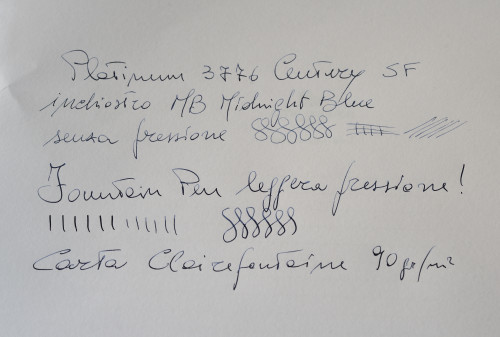 Platinum 3776 Century SF
inchiostro MB Midnight Blue
senza pressione
Fountain Pen leggera pressione!
Carta Clairefontaine 90 gr/m²